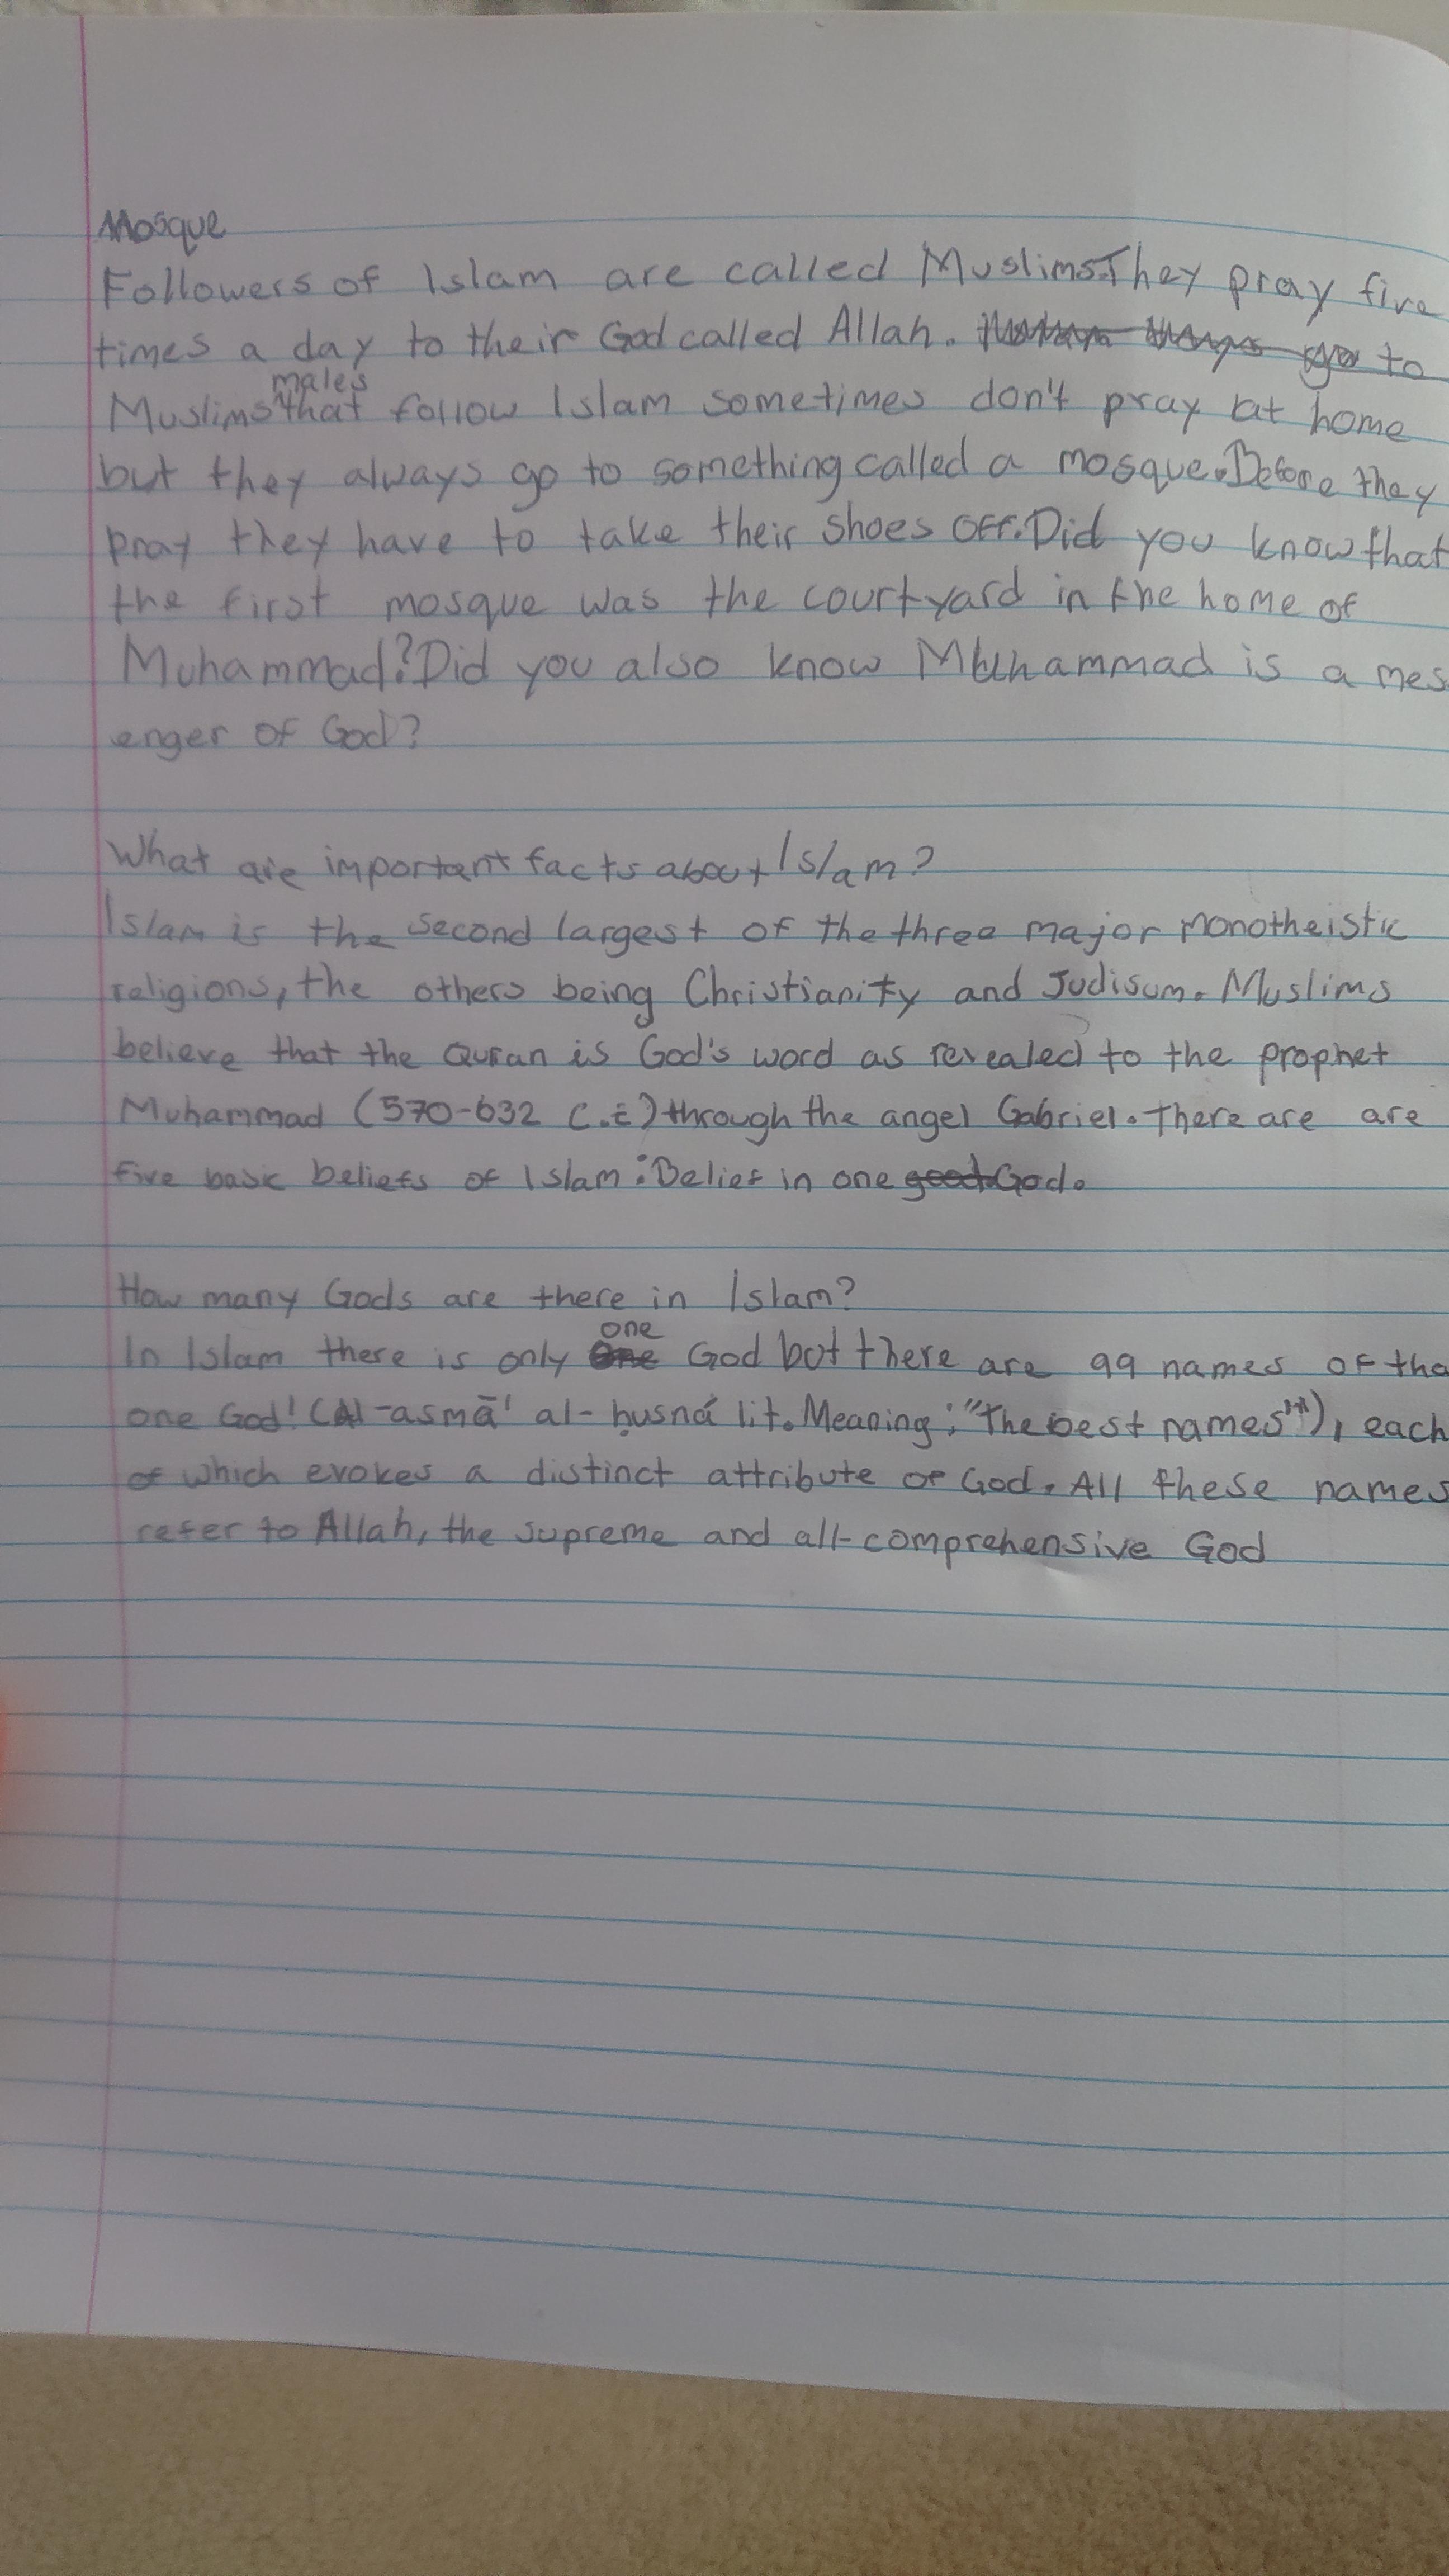 Mosque
Followers of Islam are called Muslims. They pray five
times a day to their God called Allah. to
males
Muslims that follow Islam sometimes don't pray at home
but they always go to something called a mosque. Before they
pray they have to take their shoes off. Did you know that
the first mosque was the courtyard in the home of
Muhammad? Did you also know Muhammad is a mes
enger of God?
What are important facts about Islam?
Islam is the second largest of the three major monotheistic
religions, the others being Christianity and Judisum. Muslims
believe that the Quran is God's word as revealed to the prophet
Muhammad (570-632 C.E) through the angel Gabriel. There are are
five basic beliefs of Islam: Belief in one God.
How many Gods are there in Islam?
one
In Islam there is only God but there are 99 names of the
one God! (Al-asmā' al-ḥusná lit. Meaning: "The best names"), each
of which evokes a distinct attribute of God. All these names
refer to Allah, the supreme and all-comprehensive God